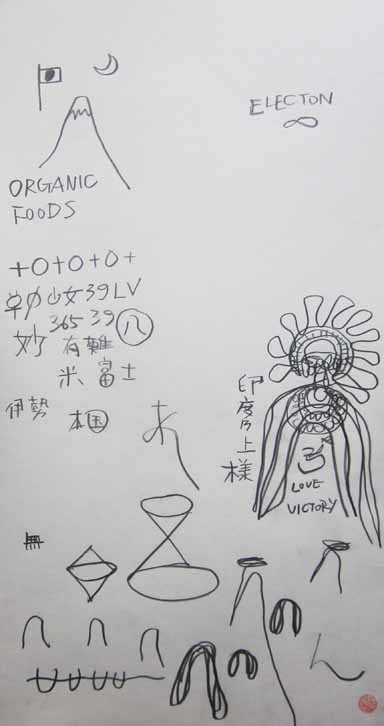 ELECTON
∞
ORGANIC
FOODS
+O+O+O+
少女39LV
妙 365 39 八
有難
米 富士
伊勢 本国
あ
印度乃上様
LOVE
VICTORY
無
ん